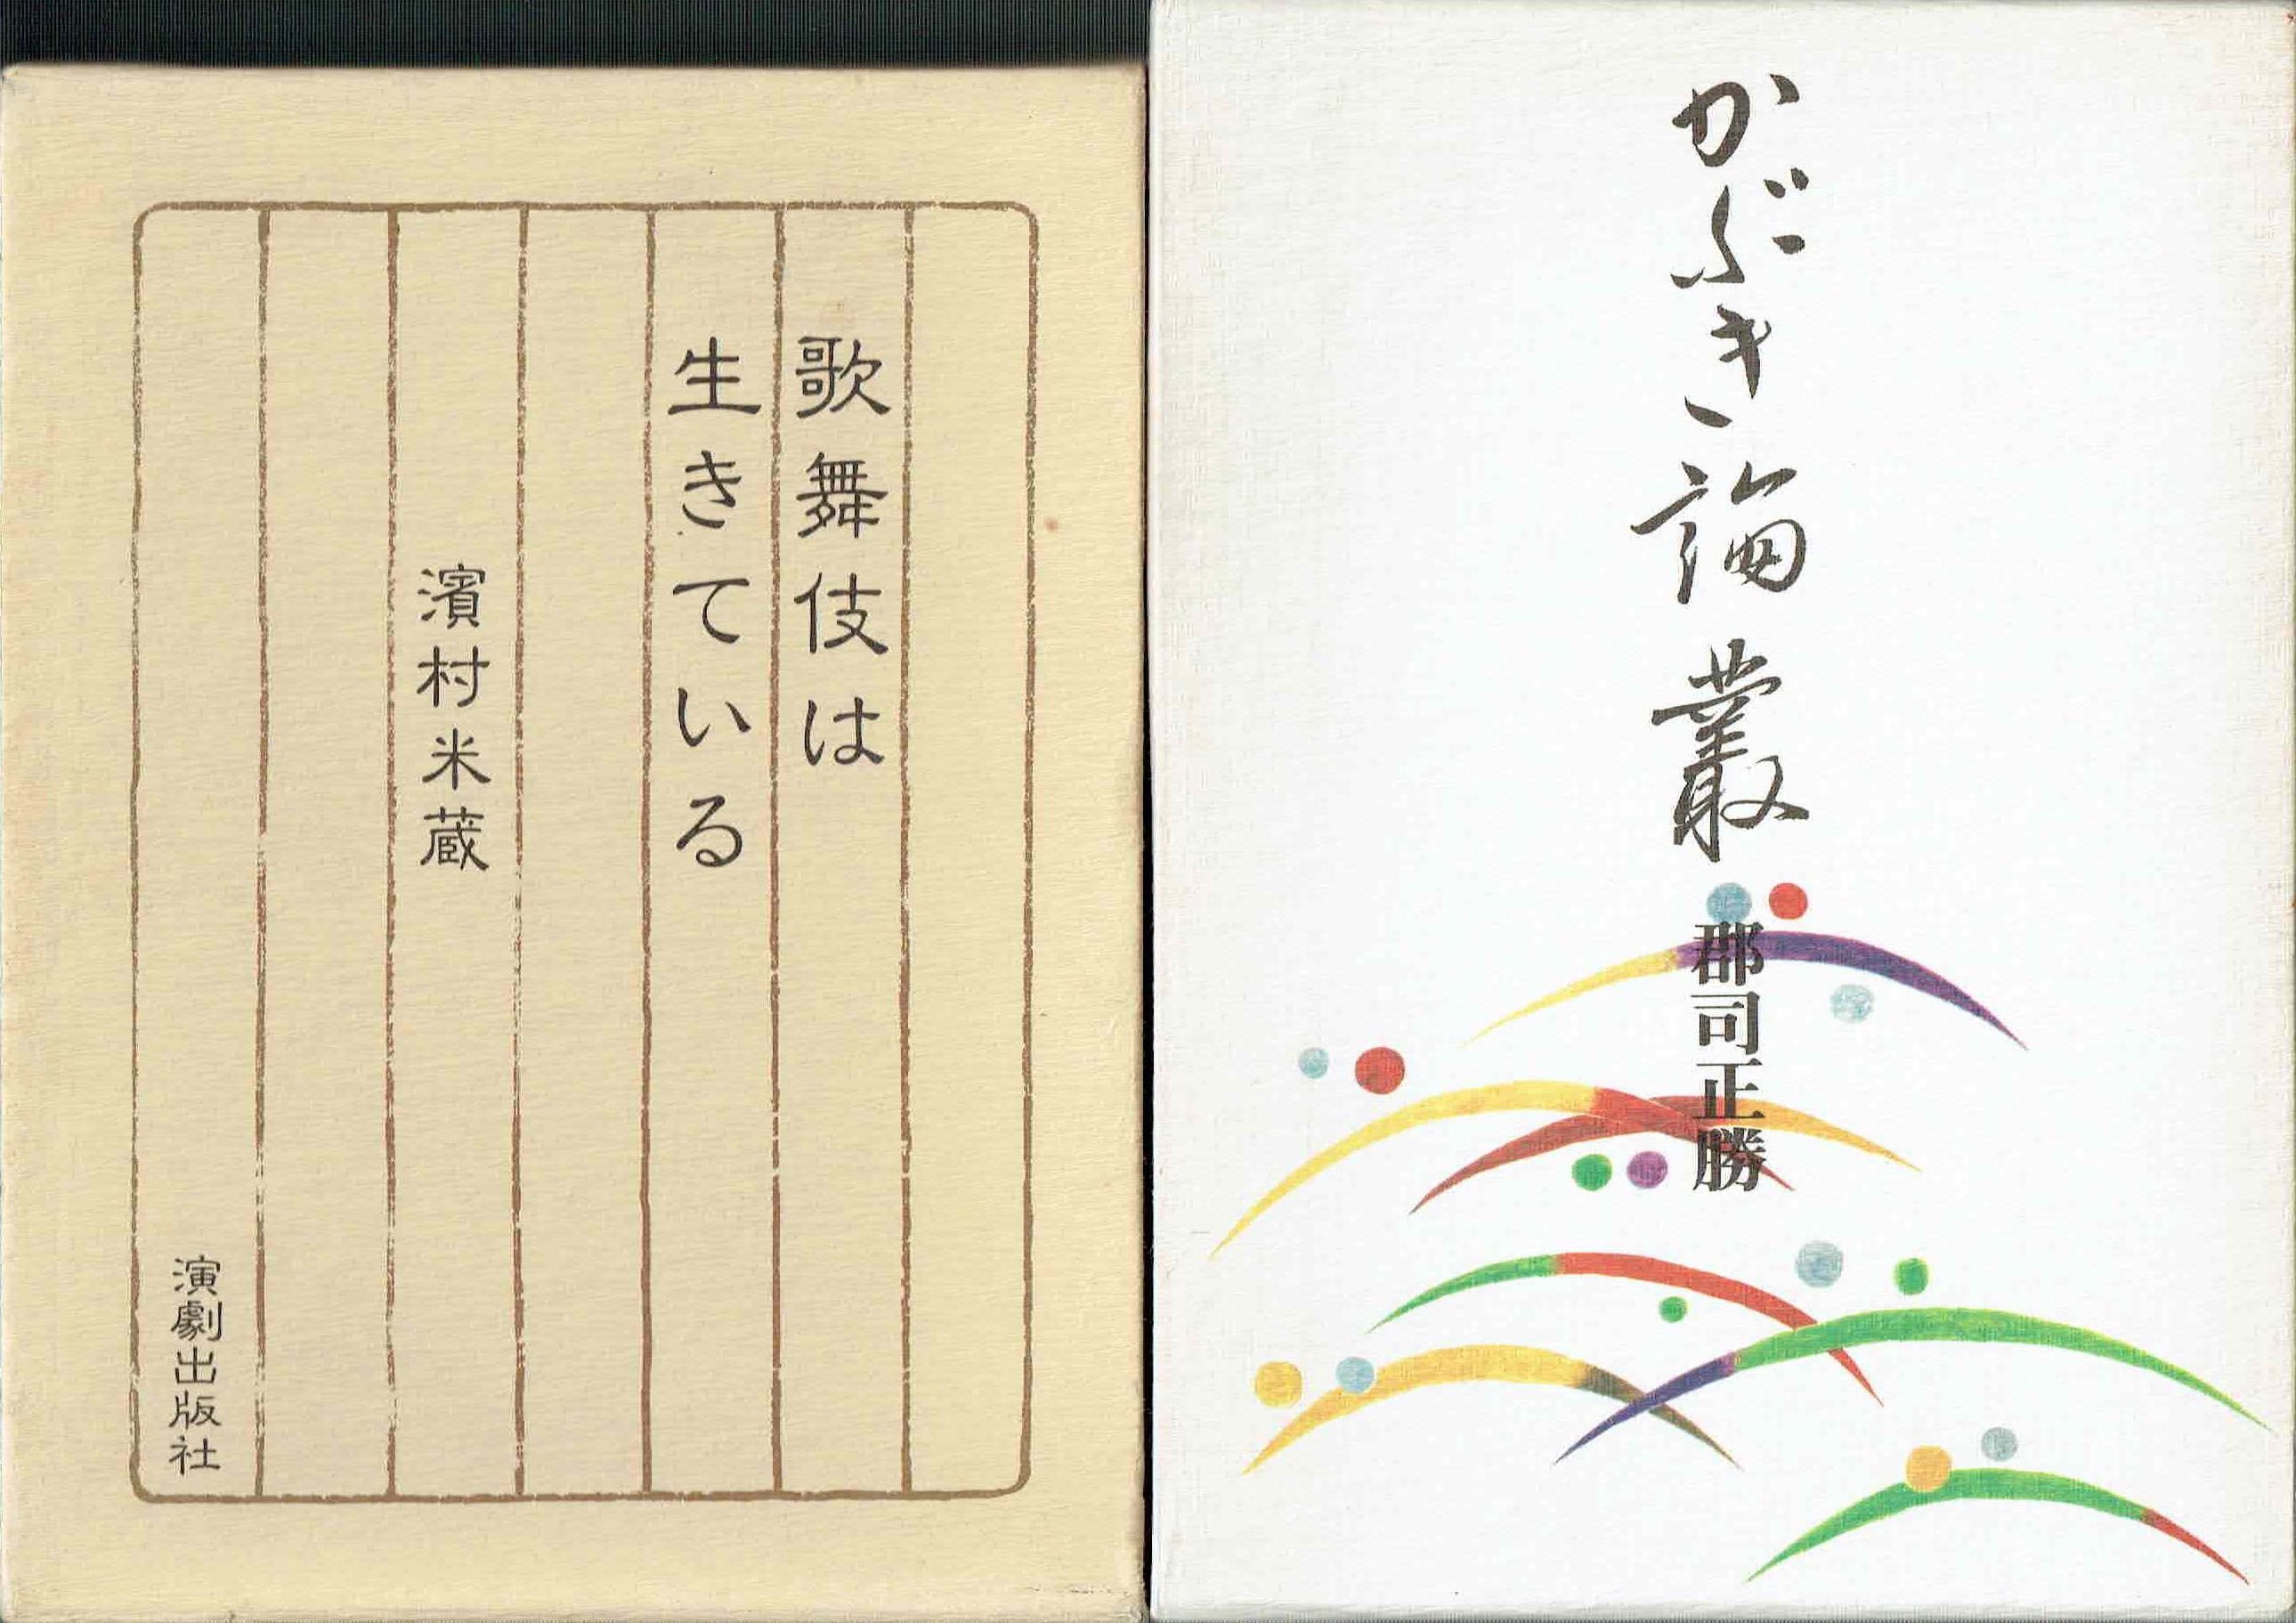 かぶき論叢
郡司正勝
歌舞伎は
生きている
濱村米蔵
演劇出版社